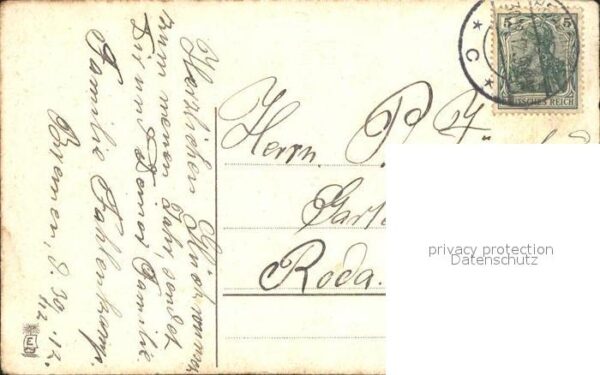 Herzlichen Glückwunsch
zum neuen Jahr, sendet
Dir und Deiner Familie
Familie Fahlenkamp.
Bremen, d. 30.12.
1912.
Herrn. P. F.
Roda.
5 5
DEUTSCHES REICH
* C *
privacy protection
Datenschutz